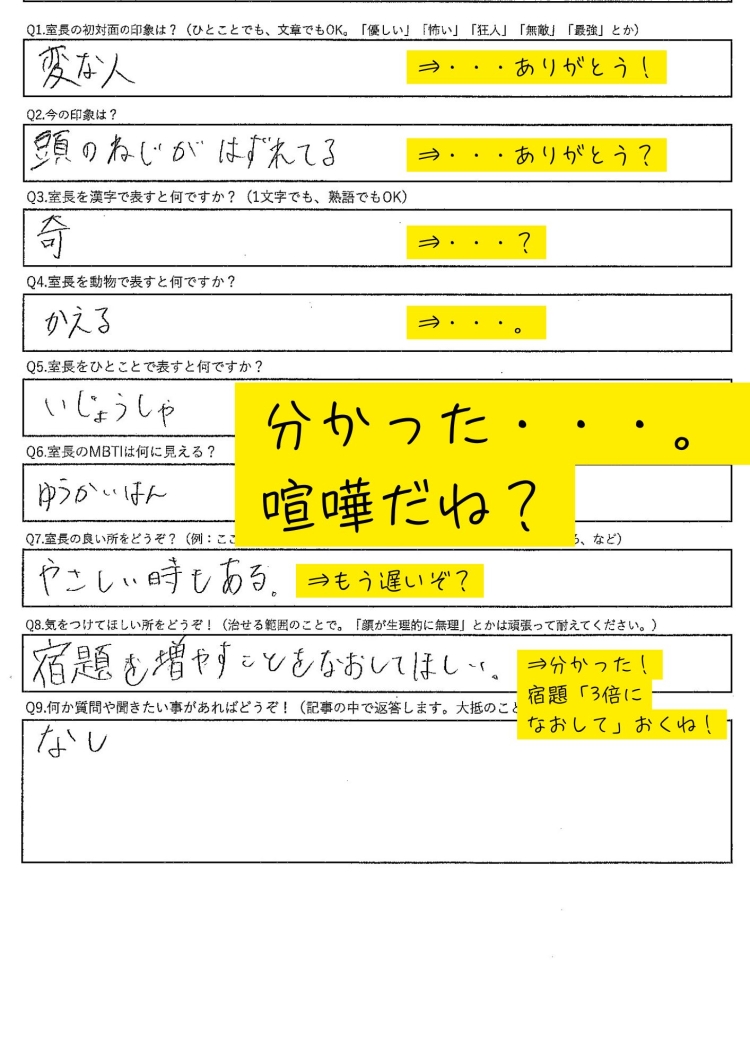 Q1.室長の初対面の印象は？（ひとことでも、文章でもOK。「優しい」「怖い」「狂人」「無敵」「最強」とか）
変な人
⇒・・・ありがとう！
Q2.今の印象は？
頭のねじがはずれてる
⇒・・・ありがとう？
Q3.室長を漢字で表すと何ですか？（1文字でも、熟語でもOK）
奇
⇒・・・？
Q4.室長を動物で表すと何ですか？
かえる
⇒・・・。
Q5.室長をひとことで表すと何ですか？
いじょうしゃ
分かった・・・。
喧嘩だね？
Q6.室長のMBTIは何に見える？
ゆうかいはん
Q7.室長の良い所をどうぞ？（例：ここ
、など）
やさしい時もある。
⇒もう遅いぞ？
Q8.気をつけてほしい所をどうぞ！（治せる範囲のことで。「顔が生理的に無理」とかは頑張って耐えてください。）
宿題を増やすことをなおしてほしい。
⇒分かった！
宿題「3倍に
なおして」おくね！
Q9.何か質問や聞きたい事があればどうぞ！（記事の中で返答します。大抵のこと
なし